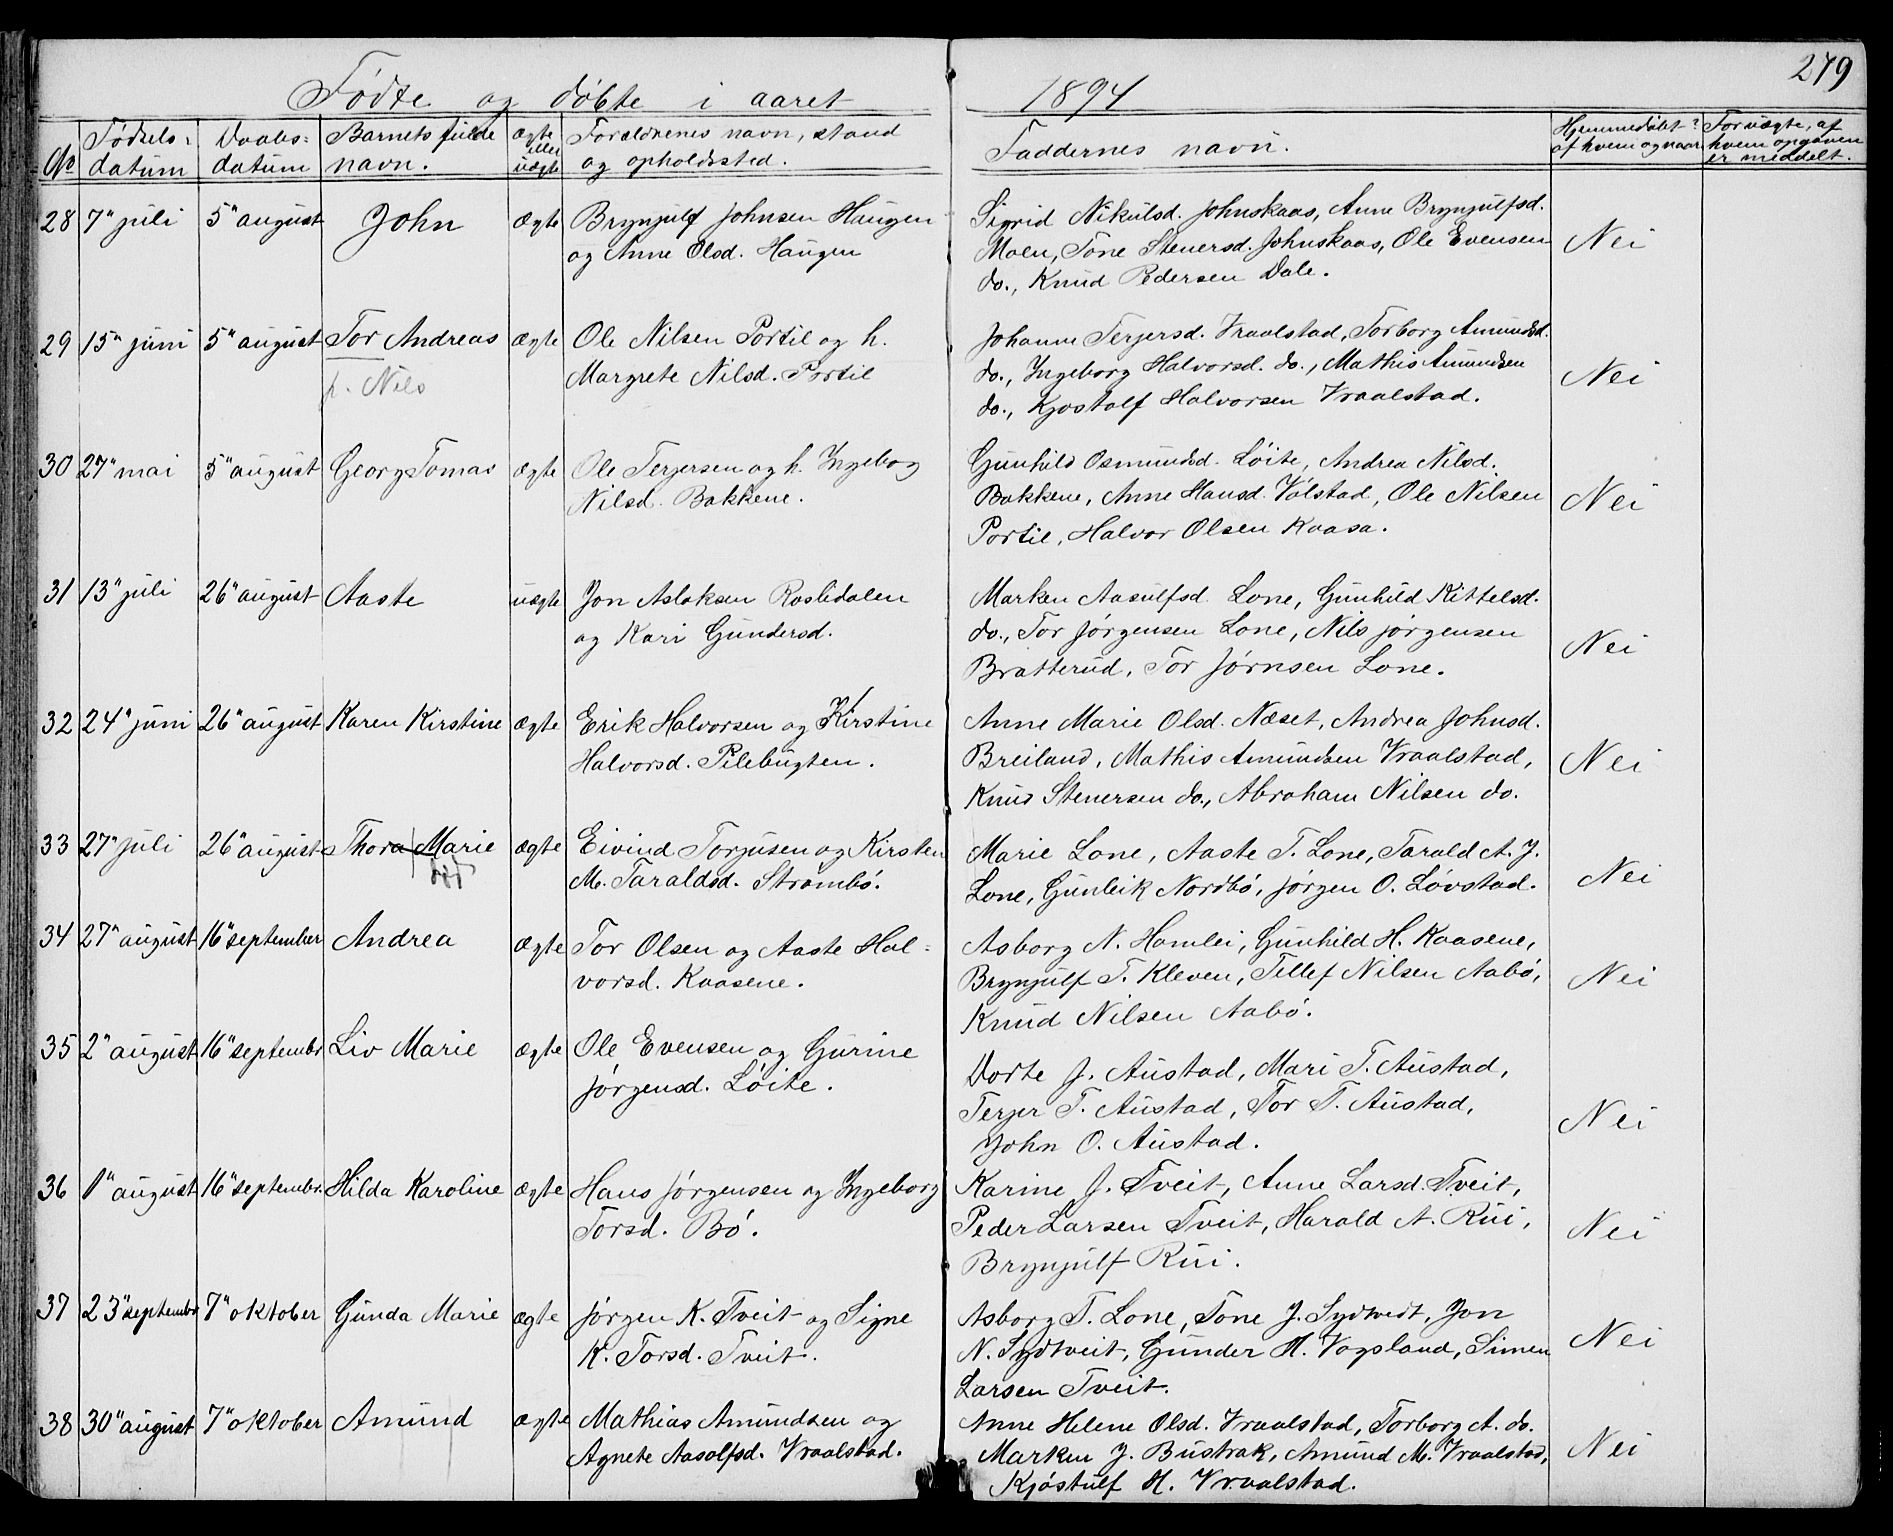 279
Fødte og døbte i aaret 1894
No Fødsels- datum Daabs- datum Barnets fulde navn. ægte eller uægte Forældrenes navn, stand og opholdssted. Faddernes navn. Hjemmedøbt? af hvem og naar For uægte, af hvem opgaven er meddelt.
28 7" juli 5" august John ægte Brynjulf Johnsen Haugen Sigrid Nikulsd. Johnskaas, Anne Brynjulfsd.
og Anne Olsd. Haugen Moen, Tone Stenersd. Johnskaas, Ole Evensen Nei
do., Knud Pedersen Dale.
29 15" juni 5" august Tor Andreas ægte Ole Nilsen Portil og h. Johanne Terjersd. Vraalstad, Torborg Amundsd.
f. Nils Margrete Nilsd. Portil do., Ingeborg Halvorsd. do., Mathis Amundsen Nei
do., Kjostolf Halvorsen Vraalstad.
30 27" mai 5" august Georg Tomas ægte Ole Terjersen og h. Ingebog Gunhild Osmundsd. Løite, Andrea Nilsd.
Nilsd. Bakkene. Bakkene, Anne Hansd. Vølstad, Ole Nilsen Nei
Portil, Halvor Olsen Kaasa.
31 13" juli 26" august Aaste uægte Jon Aslaksen Roslidalen Marken Aasulfsd. Lone, Gunhild Kittelsd.
og Kari Gundersd. do., Tor Jørgensen Lone, Nils Jørgensen Nei
Bratterud, Tor Jørnsen Lone.
32 24" juni 26" august Karen Kirstine ægte Erik Halvorsen og Kirstine Anne Marie Olsd. Næset, Andrea Johnsd.
Halvorsd. Pilebugten. Breiland, Mathis Amundsen Vraalstad, Nei
Knud Stenersen do., Abraham Nilsen do.
33 27" juli 26" august Thora Marie ægte Eivind Torjusen og Kirsten Marie Lone, Aaste T. Lone, Tarald A. J.
M. Taraldsd. Strømbø. Lone, Gunleik Nordbø, Jørgen O. Løvstad. Nei
34 27" august 16" september Andrea ægte Tor Olsen og Aaste Hal- Asborg N. Homlei, Gunhild H. Kaasene,
vorsd. Kaasene. Brynjulf T. Kleven, Tellef Nilsen Aabø, Nei
Knud Nilsen Aabø.
35 2" august 16" septembr Liv Marie ægte Ole Evensen og Gurine Dorte J. Austad, Mari T. Austad,
Jørgensd. Løite. Terjer T. Austad, Tor T. Austad, Nei
John O. Austad.
36 1" august 16" septembr. Hilda Karoline ægte Hans Jørgensen og Ingeborg Karine J. Tveit, Anne Larsd. Tveit,
Torsd. Bø. Peder Larsen Tveit, Harald A. Rui, Nei
Brynjulf Rui.
37 23" septembr 7" oktober Gunda Marie ægte Jørgen K. Tveit og Signe Asborg T. Lone, Tone J. Sydtvedt, Jon
K. Torsd. Tveit. N. Sydtveit, Gunder H. Vogsland, Simen Nei
Larsen Tveit.
38 30" august 7" oktober Amund ægte Mathias Amundsen og Anne Helene Olsd. Vraalstad, Torborg A. do.
Agnete Aasolfsd. Vraalstad. Marken J. Bustrak, Amund M. Vraalstad, Nei
Kjøstulf H. Vraalstad.